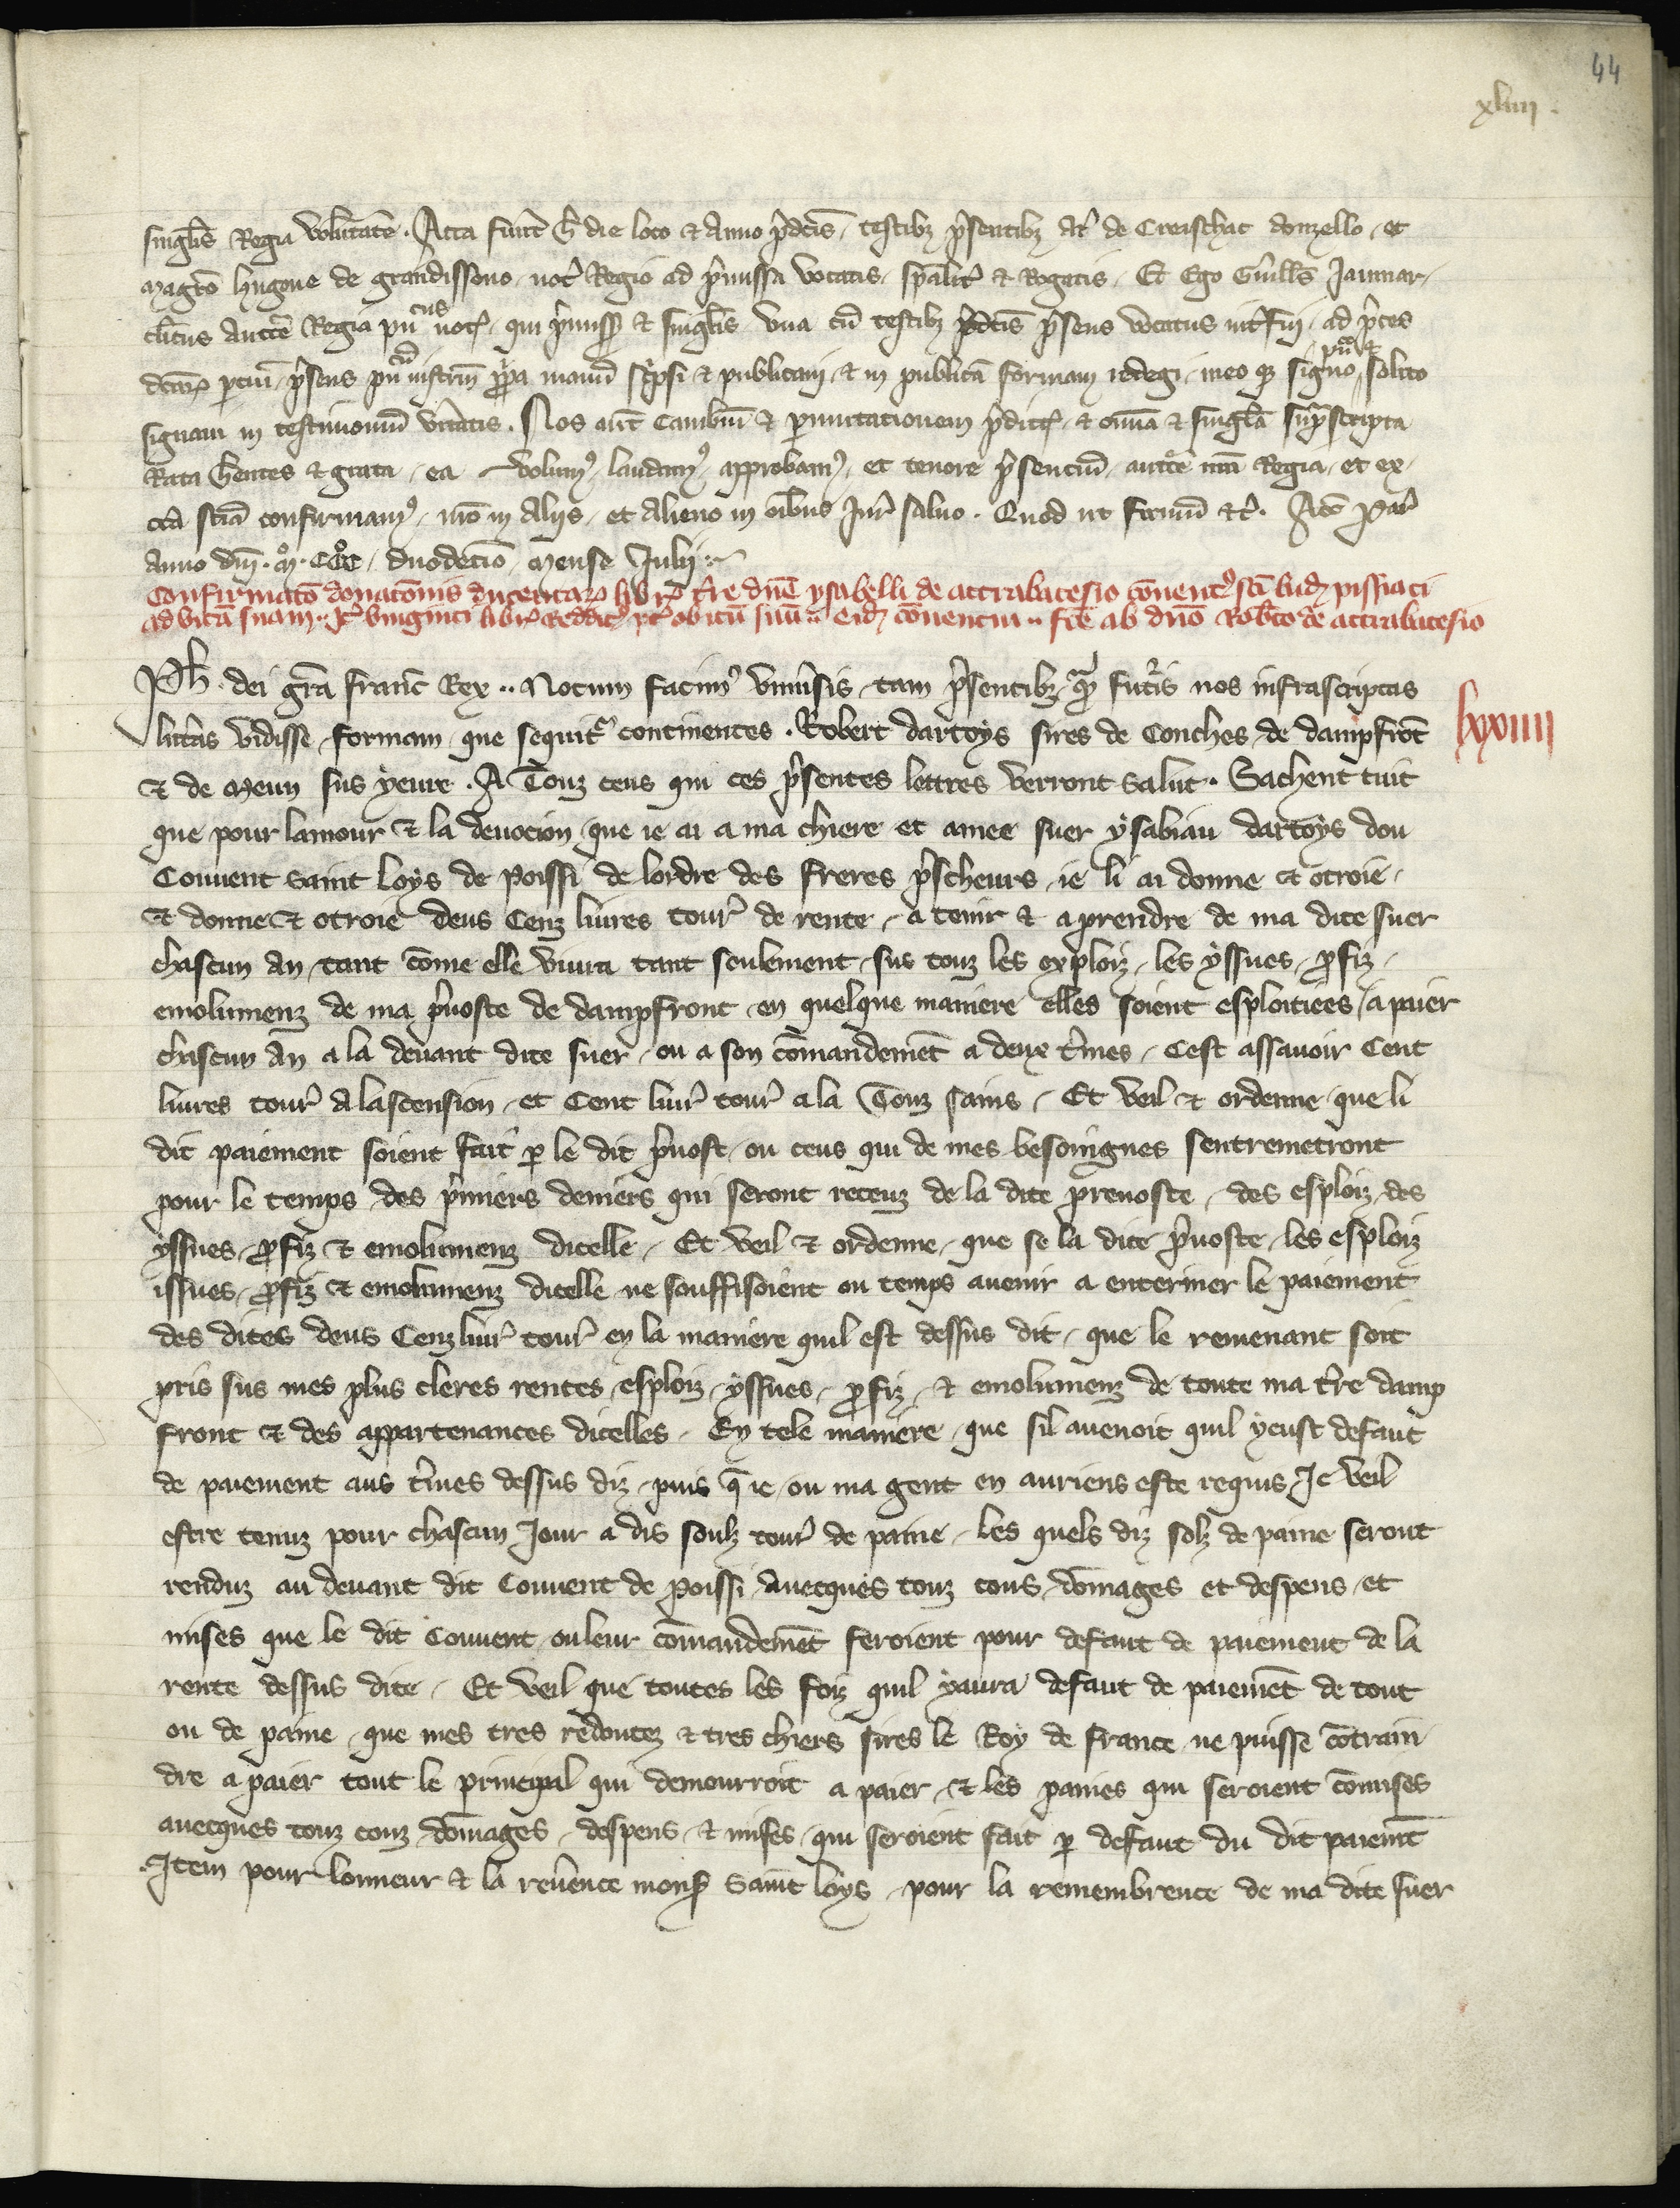 44
xliiii.
singlis Regia volutate. Acta funt h die loco et Anno pdcis, testibz psentibz de Creyschac donzello, et
magro hugone de grandissono not Regio ad pmissa vocatis, spalit et Rogatis. Et Ego Guills Januar,
clicus auctte Regia pucus not, qui pmiss et singlis vna cu testibz pdcis psens vocatus int fui, ad pces
dcar pciu, psens pucu instrm ppa manu scpsi et publicaui, et in publica formam redegi, meo qz signo solito
signaui in testimoniu vitatis. Nos aut Cambiu et pmutationem pdict, et oima et singla supscripta
Rata hentes et grata, ea volum, laudam, approbam, et tenore psenciu, auctte nra Regia, et ex
cta scia confirmam, nro in Aliis, et Alieno in oibus Jur saluo. Quod ut firmu etc. Act par
Anno dni. m. ccc, duodecio, mense Julii
Confirmato donatonis ducentar libr tre dne ysabelli de attrabatesio conuent sci lud pissiaci
ad vita suam.. It vinginti libr Reddit pt obitu suu.. eid conuentui.. fce ab dno Robto de attrabatesio
Ph. dei gra franc Rex.. Notum facim vniusis, tam psentibz qz futis nos infrascriptas
littas vidisse, formam, que sequit continentes. Robert dartoys sires de Conches, de dampfrot
et de Meun sus yeure. A Touz ceus qui ces psentes lettres verront salut. Sachent tuit
que pour lamour et la deuocion, que ie ai a ma chiere et amee suer ysabiau dartoys dou
Couuent saint Loys de Poissi de lordre des freres pscheurs, ie li ai donne et otroie,
et donne et otroie deus Cenz liures tour de rente, a tenir et a prendre de ma dite suer
chascun an, tant come elle viura tant seulement, sus touz les exploiz, les yssues, pfiz,
emolumenz de ma puoste de dampfront, en quelque maniere elles soient esploitiees, a paier
chascun an a la deuant dite suer, ou a son comandemet a deux tmes, Cest assauoir Cent
liures tour A lascension, et Cent liur tour a la Touz sains, Et veil et ordenne, que li
dit paiement soient fait p le dit puost, ou ceus qui de mes besoingnes sentremetront
pour le temps des pmiers deniers qui seront receuz de la dite preuoste, des esploiz, des
yssues, pfiz et emolumenz dicelle, Et veil et ordenne, que se la dite puoste, les esploiz
issues, pfiz et emolumenz dicelle ne souffisoient ou temps auenir a enteriner le paiement
des dites deus Cenz liur tour en la maniere quil est dessus dit, que le remenant soit
pris sus mes plus cleres rentes, esploiz, yssues, pfiz, et emolumenz de toute ma tre damp
front et des appartenances dicelles. En tele maniere, que sil auenoit quil yeust defaut
de paiement aus tmes dessus diz, puis q ie ou ma gent en auriens este requis, Je veil
estre tenuz pour chascun Jour a dis soulz tour de paine, les quels diz solz de paine seront
renduz au deuant dit Couuent de Poissi auecques touz cous, domages et despens, et
mises que le dit Couuent ou leur comandemet feroient pour defaut de paiement de la
rente dessus dite, Et veil que toutes les foiz quil yaura defaut de paiemet de tout
ou de paine, que mes tres redoutez et tres chiers sires le Roy de france ne puisse cotrain
dre a paier tout le principal qui demourroit a paier, et les paines qui seroient comises
auecques touz couz, domages, despens, et mises, qui seroient fait p defaut du dit paiemt
Item pour lonneur et la reuence mons Saint Loys, pour la remembrence de ma dite suer
lxxiiii